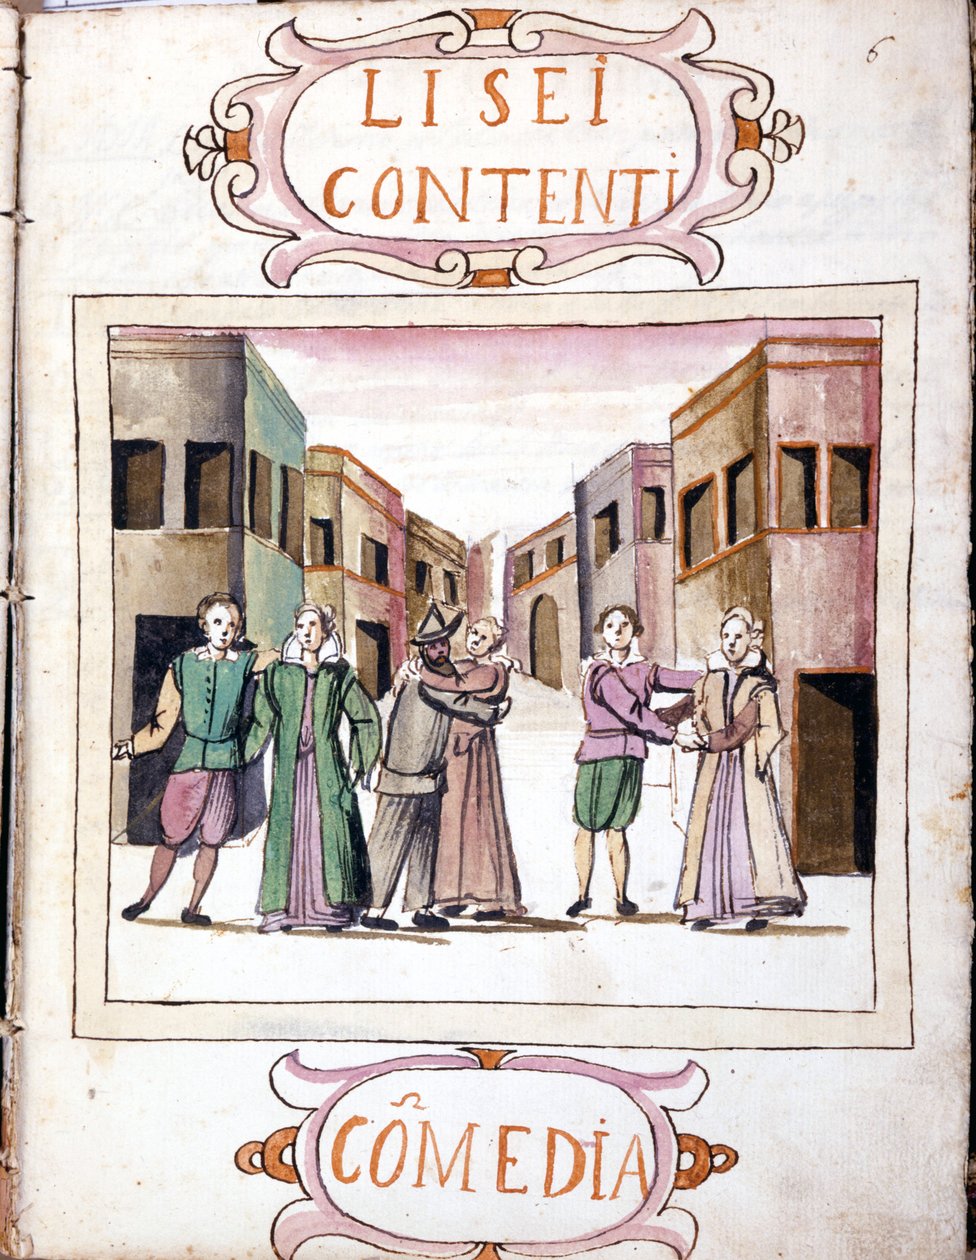 6
LI SEI
CONTENTI
CÔMEDIA